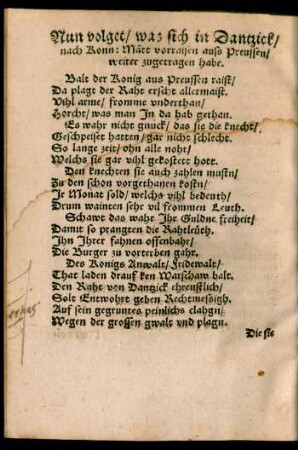 Nun volget / was sich in Dantzick /
nach Konn: Mätt vorraisen auss Preussen /
weiter zugetragen habe.
Balt der Konig aus Preussen raist /
Da plagt der Raht erscht allermaist.
Vihl arme / fromme vnderthan /
Horcht / was man In da hab gethan.
Es wahr nicht gnuck / das sie die knecht /
Geschpeist hatten / gar nicht schlecht.
So lange zeit / ohn alle noht /
Welchs sie gar vihl gekostett hott.
Den knechten sie auch zahlen mustn /
Zu den schon vorgethanen kostn /
Je Monat sold / welchs vihl bedeuth /
Drum wainten sehr vil frommen Leuth.
Schawt das wahr Ihr Guldne freiheit /
Damit so prangten die Rahtleüth.
Ihn Ihrer fahnen offenbahr /
Die Burger zu vorterben gahr.
Des Konigs Anwalt / Fridewalt /
That laden drauf ken Warschaw balt.
Den Raht von Dantzick ehrenstlich /
Solt Entwohrt geben Rechtmessigh.
Auf sein gegruntes peinlichs clahgn /
Wegen der grossen gwalt vnd plagn.
Die sie